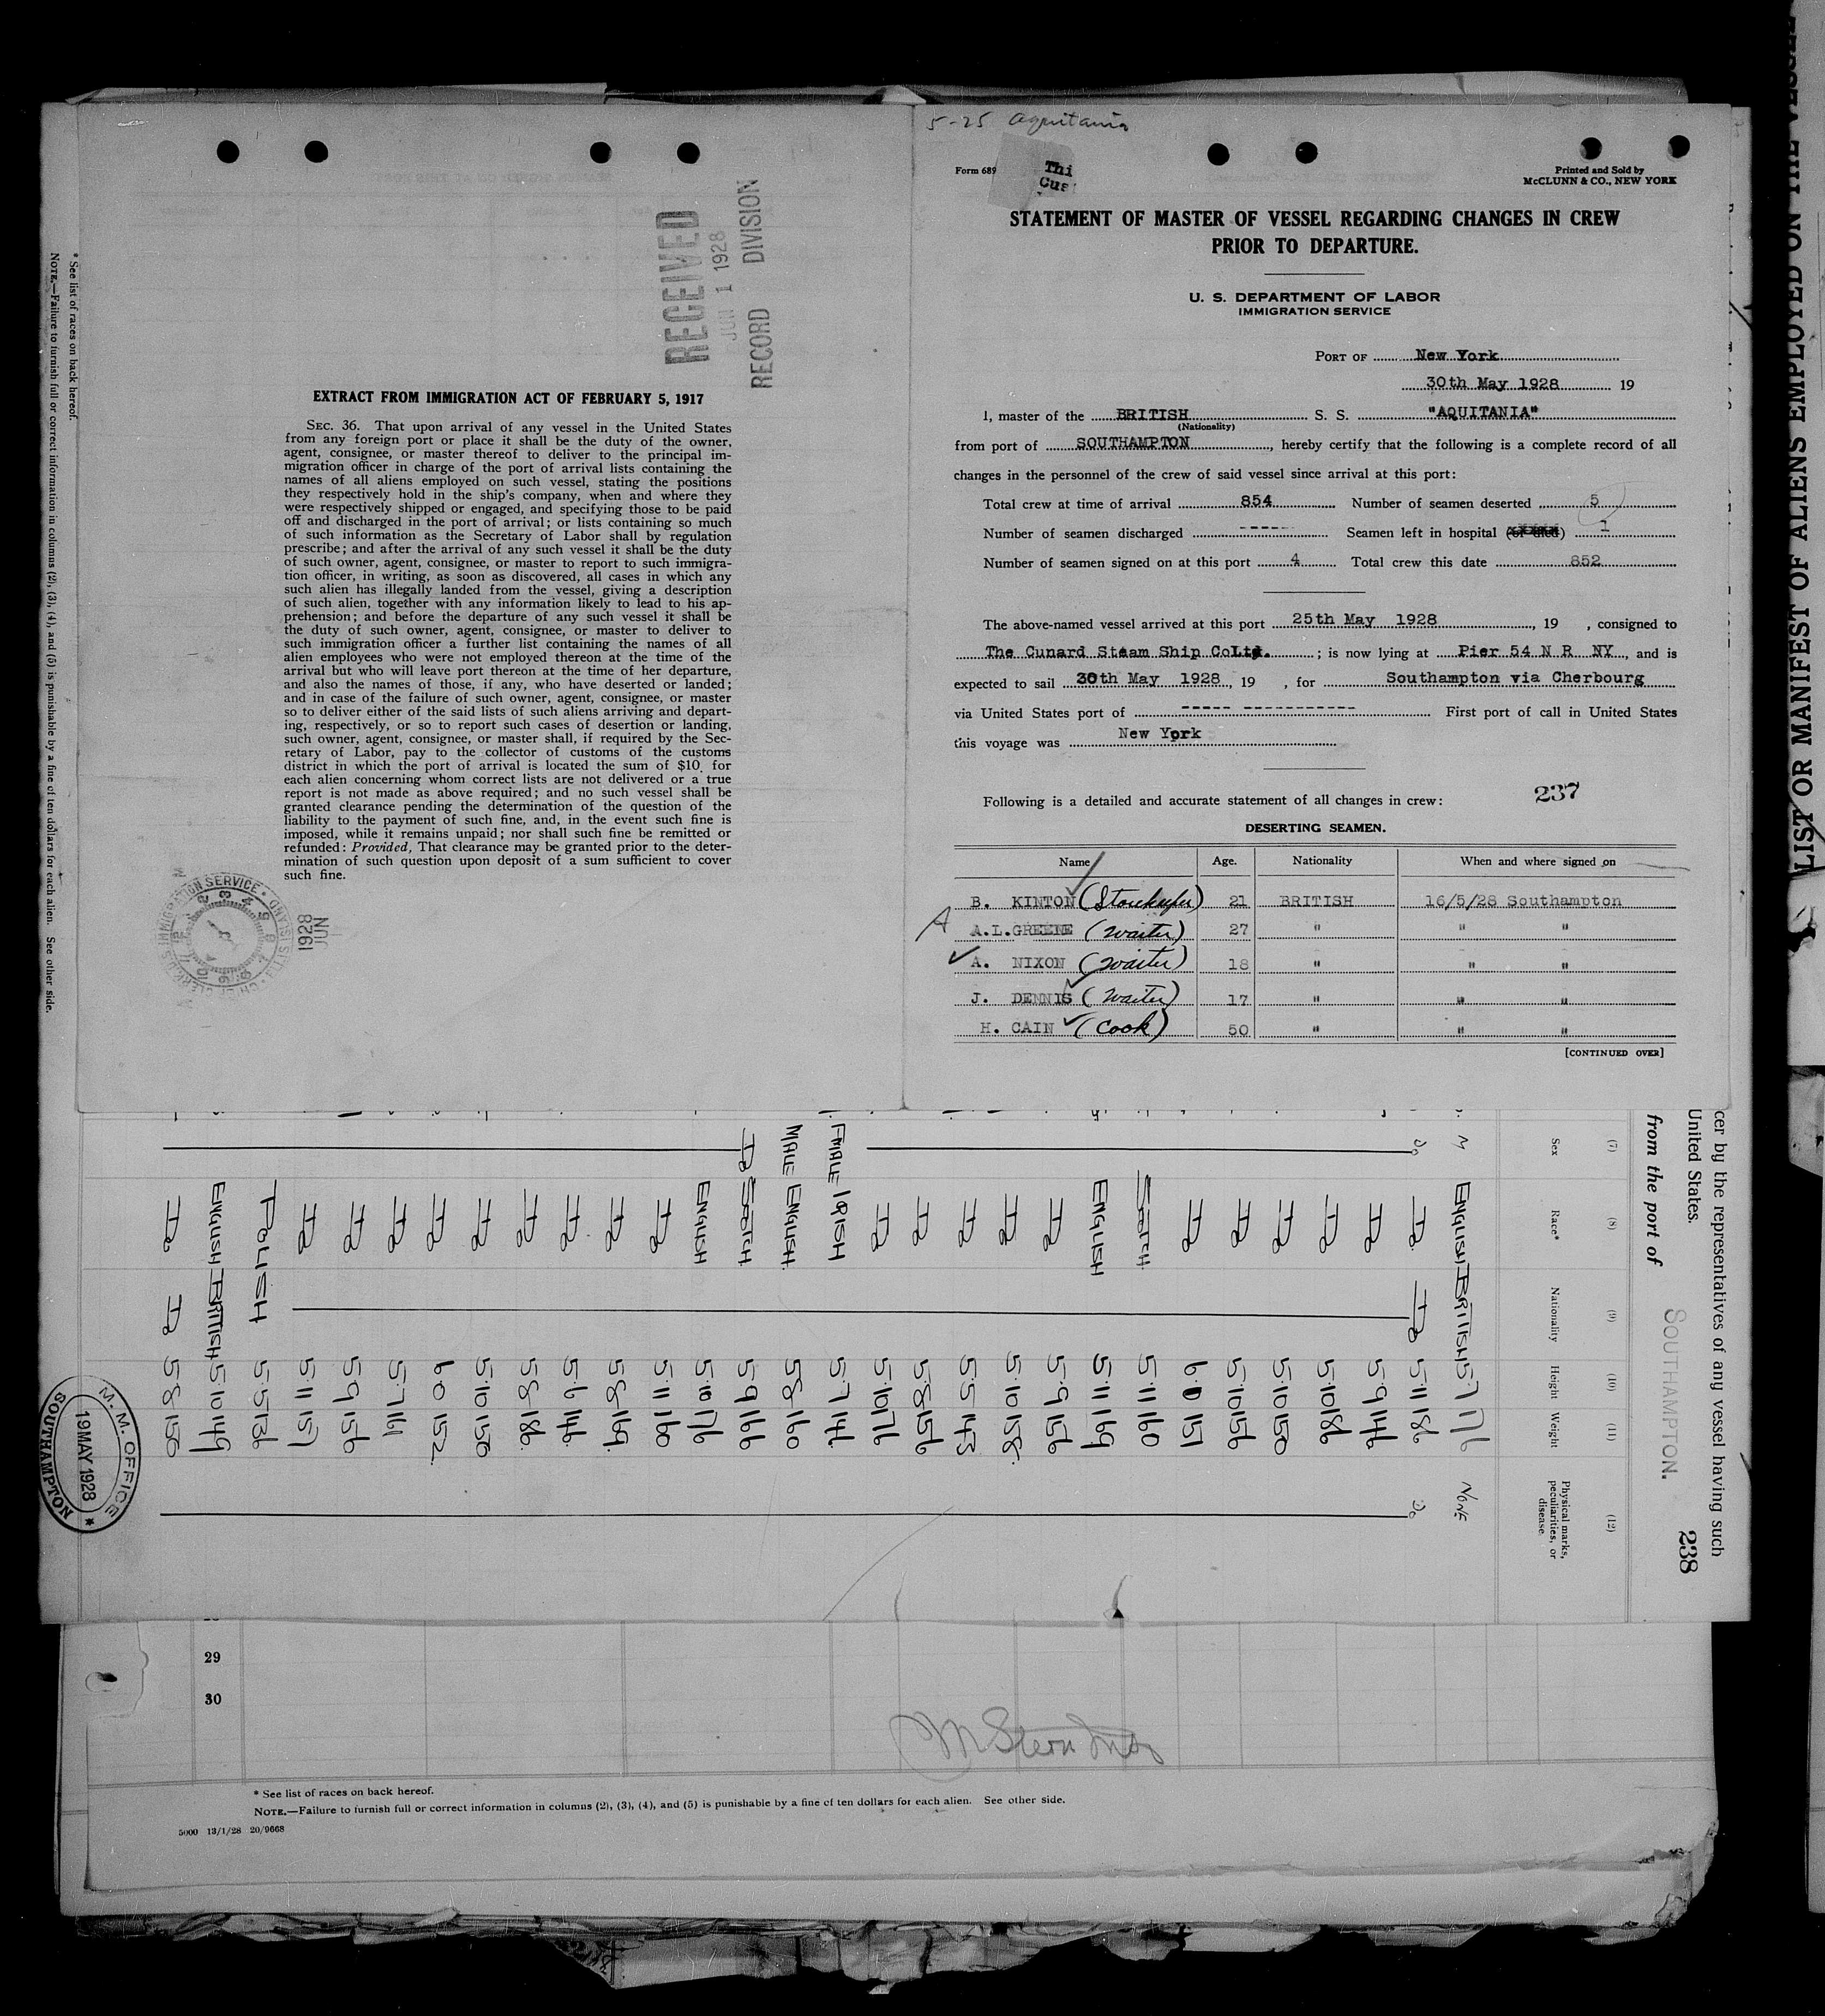 5-25 Aquitania
Form 689
Thi
Cus
Printed and Sold by
McCLUNN & CO., NEW YORK
STATEMENT OF MASTER OF VESSEL REGARDING CHANGES IN CREW
PRIOR TO DEPARTURE.
U. S. DEPARTMENT OF LABOR
IMMIGRATION SERVICE
PORT OF New York
30th May 1928 19
I, master of the BRITISH S. S. "AQUITANIA"
(Nationality)
from port of SOUTHAMPTON, hereby certify that the following is a complete record of all
changes in the personnel of the crew of said vessel since arrival at this port:
Total crew at time of arrival 854 Number of seamen deserted 5
Number of seamen discharged ----- Seamen left in hospital (or died) 1
Number of seamen signed on at this port 4 Total crew this date 852
The above-named vessel arrived at this port 25th May 1928, 19 , consigned to
The Cunard Steam Ship CoLtd. ; is now lying at Pier 54 N R NY, and is
expected to sail 30th May 1928, 19 , for Southampton via Cherbourg
via United States port of ----- ------------ First port of call in United States
this voyage was New York
Following is a detailed and accurate statement of all changes in crew: 237
DESERTING SEAMEN.
Name Age. Nationality When and where signed on
B. KINTON (Storekeeper) 21 BRITISH 16/5/28 Southampton
A A.L.GREENE (Waiter) 27 " " "
A. NIXON (Waiter) 18 " " "
J. DENNIS (Waiter) 17 " " "
H. CAIN (Cook) 50 " " "
[CONTINUED OVER]
RECEIVED
JUN 1 1928
RECORD DIVISION
EXTRACT FROM IMMIGRATION ACT OF FEBRUARY 5, 1917
SEC. 36. That upon arrival of any vessel in the United States
from any foreign port or place it shall be the duty of the owner,
agent, consignee, or master thereof to deliver to the principal im-
migration officer in charge of the port of arrival lists containing the
names of all aliens employed on such vessel, stating the positions
they respectively hold in the ship's company, when and where they
were respectively shipped or engaged, and specifying those to be paid
off and discharged in the port of arrival; or lists containing so much
of such information as the Secretary of Labor shall by regulation
prescribe; and after the arrival of any such vessel it shall be the duty
of such owner, agent, consignee, or master to report to such immigra-
tion officer, in writing, as soon as discovered, all cases in which any
such alien has illegally landed from the vessel, giving a description
of such alien, together with any information likely to lead to his ap-
prehension; and before the departure of any such vessel it shall be
the duty of such owner, agent, consignee, or master to deliver to
such immigration officer a further list containing the names of all
alien employees who were not employed thereon at the time of the
arrival but who will leave port thereon at the time of her departure,
and also the names of those, if any, who have deserted or landed;
and in case of the failure of such owner, agent, consignee, or master
so to deliver either of the said lists of such aliens arriving and depart-
ing, respectively, or so to report such cases of desertion or landing,
such owner, agent, consignee, or master shall, if required by the Sec-
retary of Labor, pay to the collector of customs of the customs
district in which the port of arrival is located the sum of $10 for
each alien concerning whom correct lists are not delivered or a true
report is not made as above required; and no such vessel shall be
granted clearance pending the determination of the question of the
liability to the payment of such fine, and, in the event such fine is
imposed, while it remains unpaid; nor shall such fine be remitted or
refunded: Provided, That clearance may be granted prior to the deter-
mination of such question upon deposit of a sum sufficient to cover
such fine.
1928
JUN
* See list of races on back hereof.
NOTE.—Failure to furnish full or correct information in columns (2), (3), (4), and (5) is punishable by a fine of ten dollars for each alien. See other side.
LIST OR MANIFEST OF ALIENS EMPLOYED ON THE VESSEL
cer by the representatives of any vessel having such
United States.
238
from the port of SOUTHAMPTON.
(7) (8) (9) (10) (11) (12)
Sex Race* Nationality Height Weight Physical marks, peculiarities, or disease
M ENGLISH BRITISH 5·7 176 NONE
Do Do Do 5·11 186 Do
Do 5·9 146
Do 5·10 186
Do 5·10 150
Do 5·10 156
Do 6·0 151
SCOTCH 5·11 160
ENGLISH 5·11 169
Do 5·9 156
Do 5·10 158
Do 5·5 143
Do 5·8 156
Do 5·10 176
FMALE IRISH 5·7 144
MALE ENGLISH 5·8 160
Do SCOTCH 5·9 166
ENGLISH 5·10 176
Do 5·11 160
Do 5·8 149
Do 5·6 144
Do 5·8 186
Do 5·10 150
Do 6·0 152
Do 5·7 161
Do 5·9 156
Do 5·11 157
POLISH 5·5 136
ENGLISH BRITISH 5·10 149
Do Do 5·8 150
M. M. OFFICE
19 MAY 1928
SOUTHAMPTON
29
30
* See list of races on back hereof.
NOTE.—Failure to furnish full or correct information in columns (2), (3), (4), and (5) is punishable by a fine of ten dollars for each alien. See other side.
5000 13/1/28 20/9668